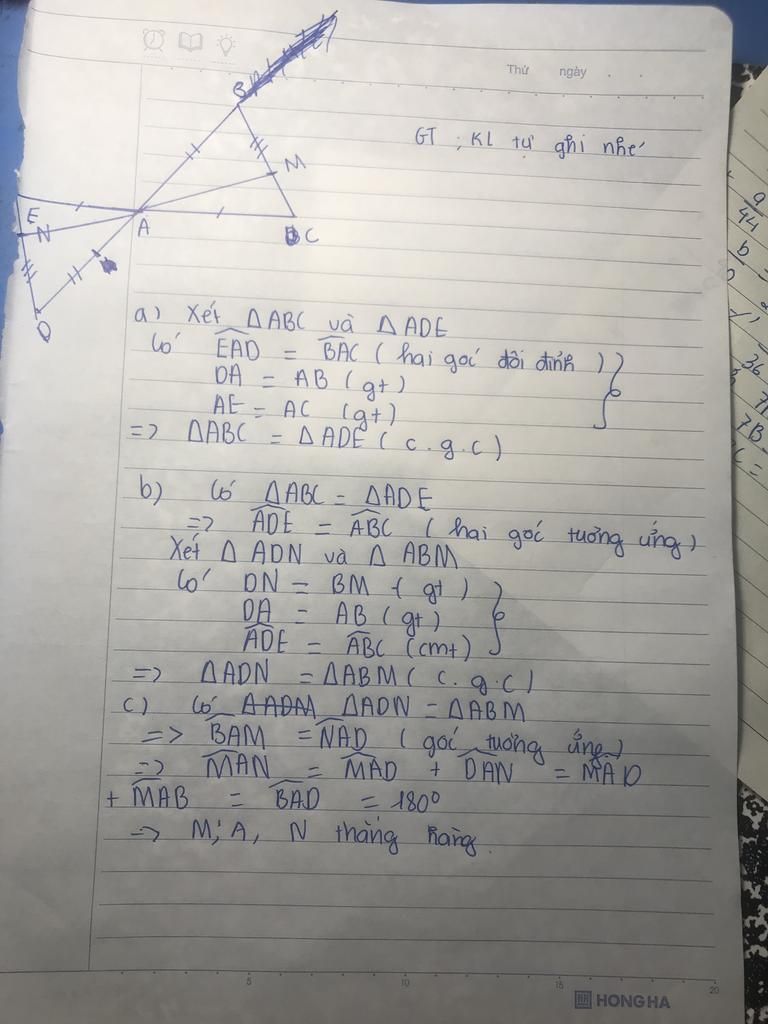 Thứ ngày . .
B
GT ; KL tự ghi nhé
M
E
N
A
C
D
9
44
b
36
7B
a) Xét ΔABC và ΔADE
Có EAD = BAC ( hai goć đôí đỉnh )
DA = AB ( gt)
AE = AC (gt)
=> ΔABC = ΔADE ( c.g.c)
b) Có ΔABC = ΔADE
=> ADE = ABC ( hai goć tương ứng)
Xét Δ ADN và Δ ABM
Có DN = BM ( gt )
DA = AB ( gt)
ADE = ABC (cmt)
=> ΔADN = ΔABM ( c.g.c)
c) Có ΔADN = ΔABM
=> BAM = NAD ( goć tương ứng)
=> MAN = MAD + DAN = MAD
+ MAB = BAD = 180⁰
=> M, A, N thẳng hàng.
5 10 15 20
HONG HA